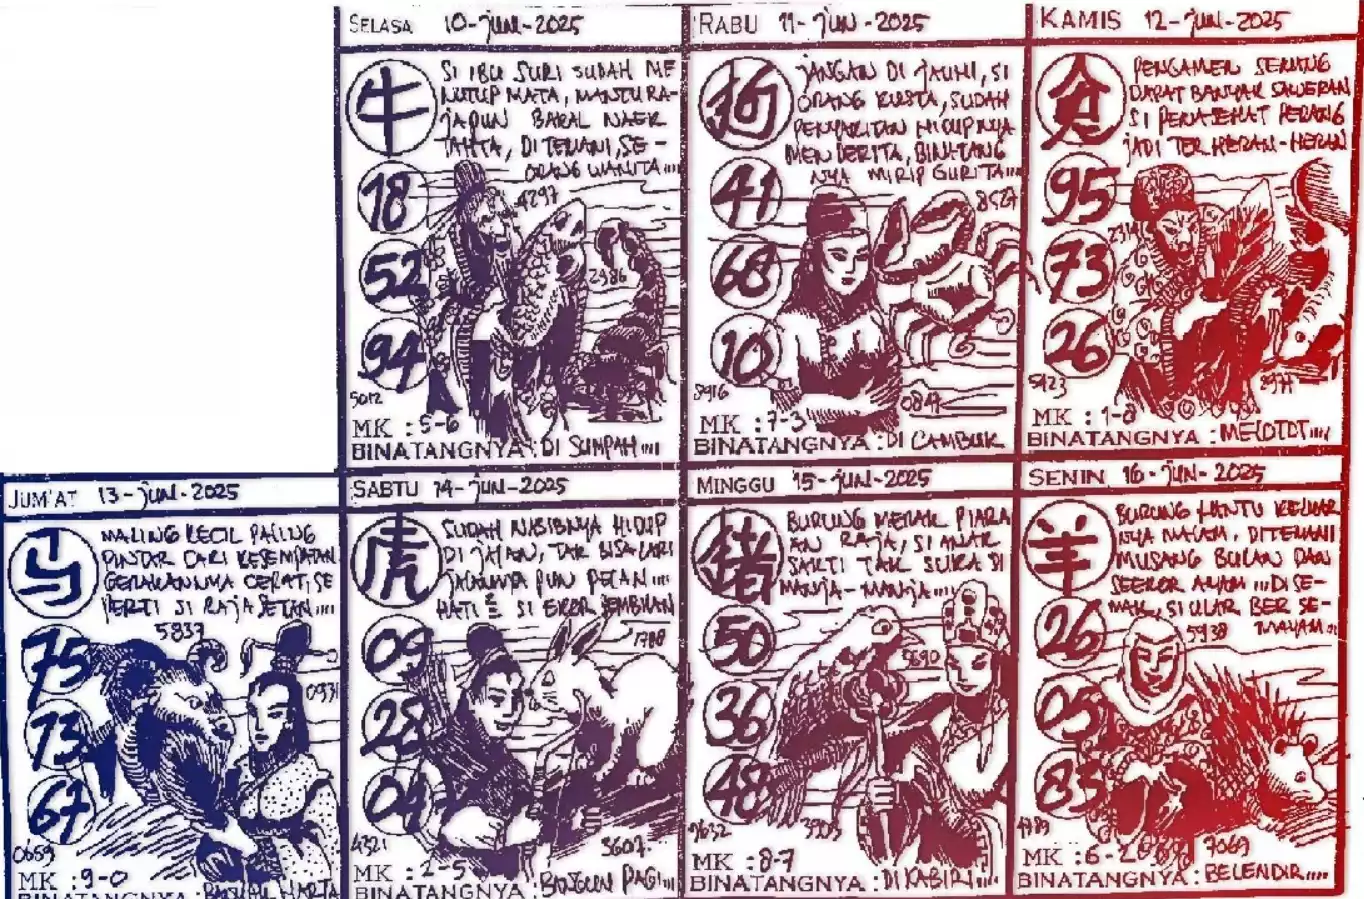 SELASA 10-JUNI-2025
牛
SI IBU SURI SUDAH ME
NUTUP MATA, MANTU RA-
JAPUN BAKAL NAEK
TAHTA, DI TEMANI, SE-
ORANG WANITA....
18
4297
52
2986
94
5012
MK : 5-6
BINATANGNYA : DI SUMPAH....
RABU 11-JUNI-2025
狗
JANGAN DI JAUHI, SI
ORANG KUSTA, SUDAH
PENYAKITAN HIDUPNYA
MENDERITA, BINATANG
NYA MIRIP GURITA....
41
8527
68
10
8916
0847
MK : 7-3
BINATANGNYA : DI CAMBUK
KAMIS 12-JUNI-2025
PENGAMEN SENANG
DAPAT BANYAK SAWERAN
SI PENASEHAT PERANG
JADI TERHERAN-HERAN
95
73
26
5423
MK : 1-8
BINATANGNYA : MELOTOT....
JUM'AT 13-JUNI-2025
马
MALING KECIL PALING
PINTAR CARI KESEMPATAN
GERAKANNYA CEPAT, SE
PERTI SI RAJA SETAN....
5837
75
0931
73
67
0669
MK : 9-0
BINATANGNYA : HARTA
SABTU 14-JUNI-2025
虎
SUDAH NASIBNYA HIDUP
DI JALAN, TAK BISA LARI
JALANNYA PUN PELAN....
HATI 2 SI EKOR JEMBILAN
09
1788
28
04
4321
3607
MK : 2-5
BINATANGNYA : BANGUN PAGI....
MINGGU 15-JUNI-2025
猪
BURUNG MERAK PIARA
AN RAJA, SI ANAK
SAKTI TAK SUKA DI
MANJA-MANJA....
50
5690
36
48
9632
MK : 8-7
BINATANGNYA : DI KABIRI....
SENIN 16-JUNI-2025
羊
BURUNG HANTU KELUAR
NYA MALAM, DITEMANI
MUSANG BULAN DAN
SEEKOR AYAM ....DI SE-
MAK, SI ULAR BER SE-
MAYAM..
26
5938
05
83
4789
7069
MK : 6-2
BINATANGNYA : BELENDIR....